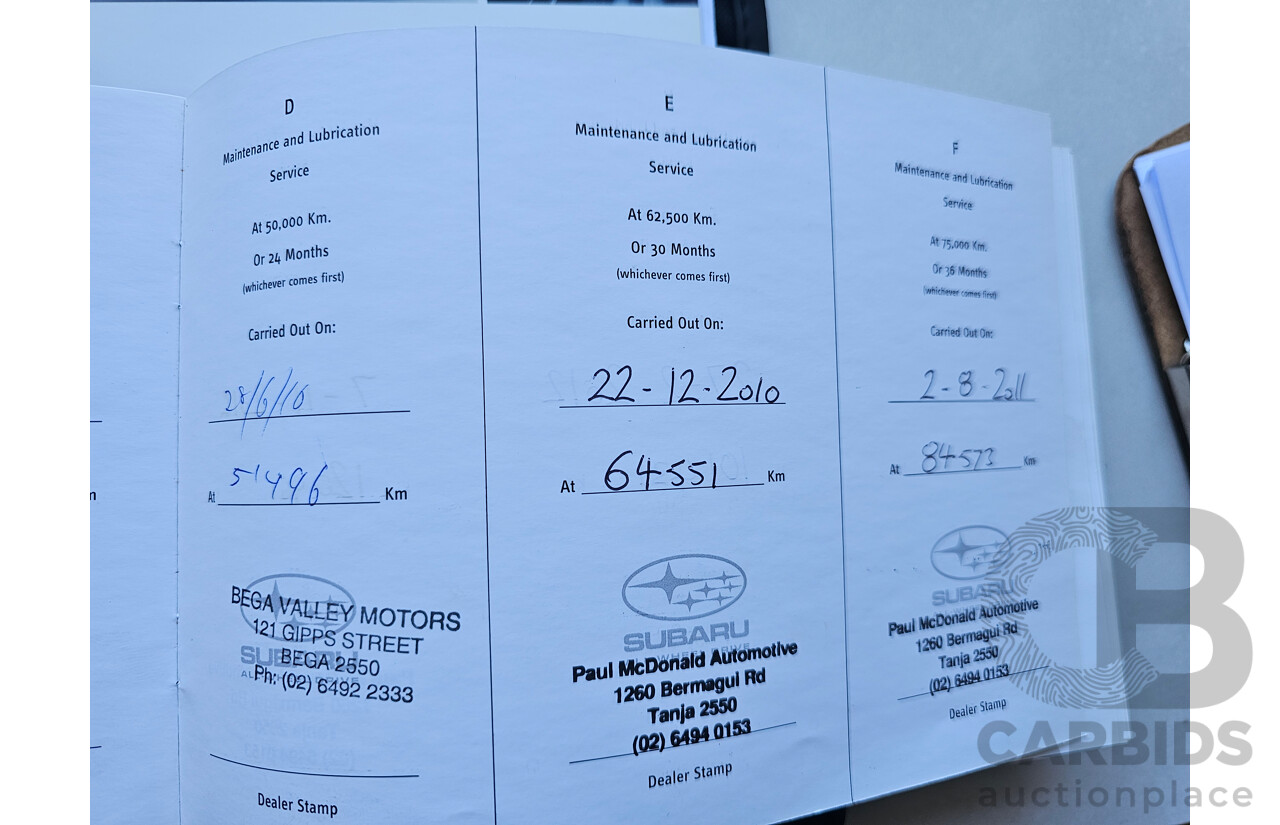 D
Maintenance and Lubrication
Service
At 50,000 Km.
Or 24 Months
(whichever comes first)
Carried Out On:
28/6/10
At 51496 Km
BEGA VALLEY MOTORS
121 GIPPS STREET
SUBARU
BEGA 2550
Ph: (02) 6492 2333
Dealer Stamp
E
Maintenance and Lubrication
Service
At 62,500 Km.
Or 30 Months
(whichever comes first)
Carried Out On:
22-12-2010
At 64551 Km
SUBARU
Paul McDonald Automotive
1260 Bermagui Rd
Tanja 2550
(02) 6494 0153
Dealer Stamp
F
Maintenance and Lubrication
Service
At 75,000 Km.
Or 36 Months
(whichever comes first)
Carried Out On:
2-8-2011
At 84573 Km
SUBARU
Paul McDonald Automotive
1260 Bermagui Rd
Tanja 2550
(02) 6494 0153
Dealer Stamp
CB
CARBIDS
auctionplace